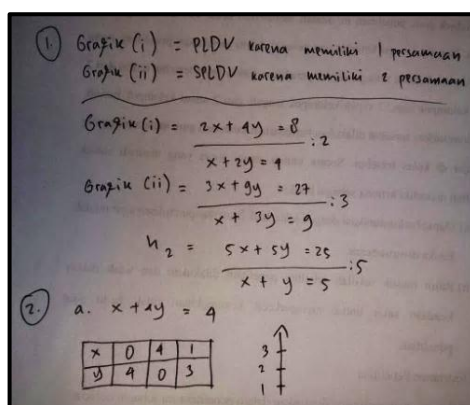 1. Grafik (i) = PLDV karena memiliki 1 persamaan
Grafik (ii) = SPLDV karena memiliki 2 persamaan
Grafik (i) = 2x + 4y = 8 : 2
x + 2y = 4
Grafik (ii) = 3x + 9y = 27 : 3
x + 3y = 9
h2 = 5x + 5y = 25 : 5
x + y = 5
2. a. x + y = 4
x 0 4 1
y 4 0 3
3
2
1